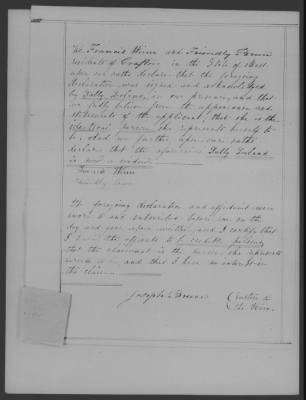 We Francis Winn and Friendly Farrin
residents of Crafton in the State of
upon our oaths declare that the foregoing
declaration was signed and acknowledged
by Dolly in our presence, and that
we fully believe from the appearance and
statements of the applicant, that she is the
identical person she represents herself to
be. And we further upon our oaths
declare that the aforesaid Dolly
is now a widow
Francis Winn
Friendly
The foregoing declaration and affidavit were
sworn to and subscribed before me on the
day and year above written, and I certify that
I know the affiants to be credible persons
that the claimant is the person she represents
herself to be, and that I have no interest in
this claim
Joseph Farrar